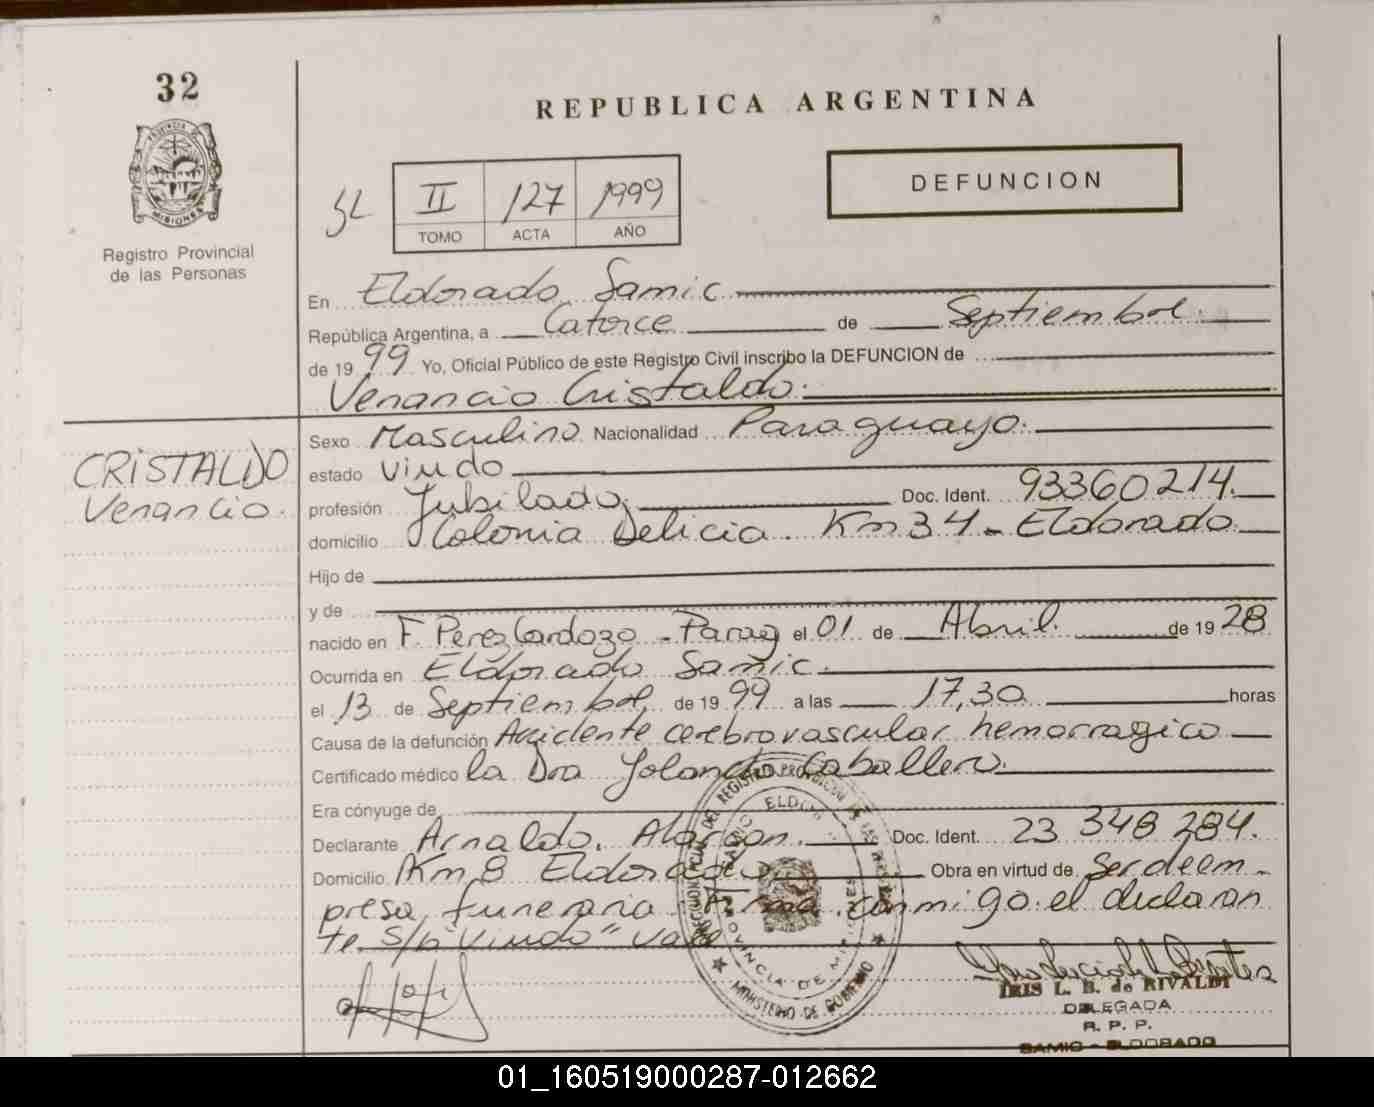 32
REPUBLICA ARGENTINA
DEFUNCION
II 127 1999
TOMO ACTA AÑO
PROVINCIA DE
MISIONES
Registro Provincial
de las Personas
En Eldorado Samic
República Argentina, a Catorce de Septiembre
de 1999 Yo, Oficial Público de este Registro Civil inscribo la DEFUNCION de
Venancio Cristaldo.
CRISTALDO
Venancio.
Sexo Masculino Nacionalidad Paraguayo.
estado viudo
profesión Jubilado. Doc. Ident. 93360214.
domicilio Colonia Delicia. Km 34 - Eldorado
Hijo de
y de
nacido en F. Perez Cardozo - Parag el 01 de Abril. de 1928
Ocurrida en Eldorado Samic.
el 13 de Septiembre, de 1999 a las 17,30 horas
Causa de la defunción Accidente cerebrovascular hemorragico
Certificado médico la Dra Yolanda Caballero.
Era cónyuge de
Declarante Arnaldo. Alarcon. Doc. Ident. 23 348 284.
Domicilio Km 8 Eldorado Obra en virtud de Ser de em-
presa funeraria. Firma conmigo el declaran
te. S/b "viudo" vale
IRIS L. B. de RIVALDI
DELEGADA
R. P. P.
SAMIC - ELDORADO
PROVINCIA DE MISIONES
MINISTERIO DE GOBIERNO
01_160519000287-012662